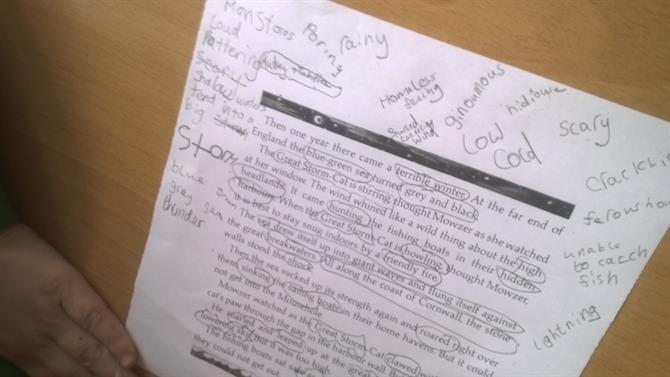 Monstoros
Poring
rainy
Loud
Pattering
Scary
big
Stormy
blue
grey sea
thunder
Homeless
Wind
ginoumous
hidiowe
Low
Cold
scary
unable
to catch
fish
lightning
Then one year there came a terrible winter. At the far end of
England the blue-green sea turned grey and black.
The Great Storm-Cat is stirring, thought Mowzer as she watched
at her window. The wind whined like a wild thing about the high
headlands. It came hunting the fishing boats in their hidden
harbours. When the Great Storm-Cat is howling, thought Mowzer,
it is best to stay snug indoors by a friendly fire.
The sea drew itself up into giant waves and flung itself against
the great breakwaters. All along the coast of Cornwall, the stone
walls stood the shock.
Then the sea sucked up its strength again and roared right over
them, sinking the sailing boats in their home havens. But it could
not get into the Mousehole.
Mowzer watched as the Great Storm-Cat clawed with
cat's paw through the gap in the harbour wall. But
He snarled and leaped up at the great
lowering sky but it was too high.
The fishing boats sat safe
they could not get out